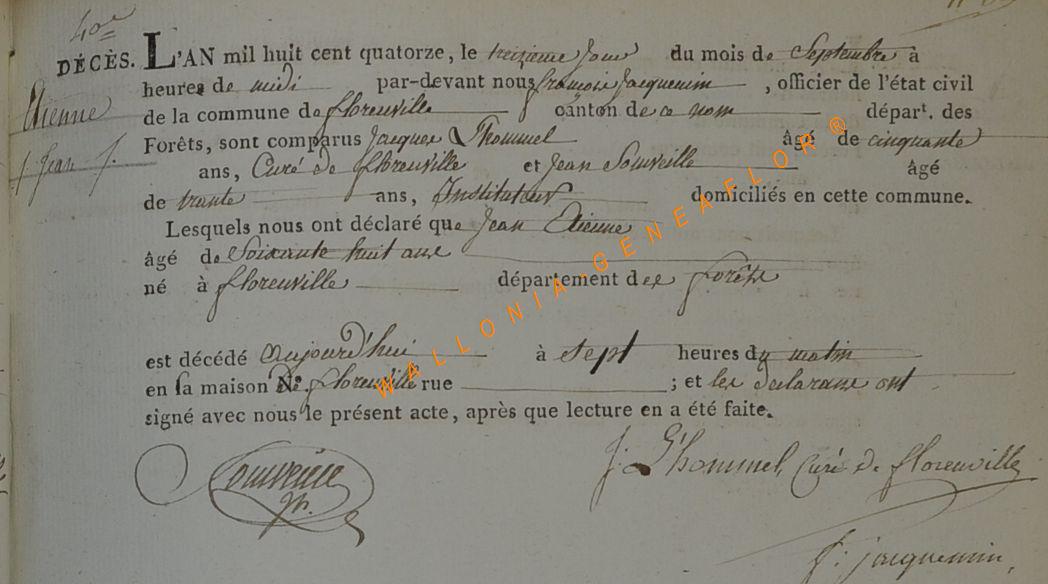 40e
DÉCÈS. L'AN mil huit cent quatorze, le treizieme jour du mois de Septembre à
heures de midi par-devant nous françois Jacquemin, officier de l'état civil
Etienne
de la commune de florenville canton de ce nom départ. des
Forêts, sont comparus Jacques L'hommel âgé de cinquante
/ Jean /.
ans, Curé de florenville et Jean Souveille âgé
de trante ans, Instituteur domiciliés en cette commune.
Lesquels nous ont déclaré que Jean Etienne
âgé de Soixante huit ans
né à florenville département des forêts
est décédé aujourd'hui à sept heures du matin
en sa maison N°. de florenville rue ; et les declarans ont
signé avec nous le présent acte, après que lecture en a été faite.
Souveille
J. L'hommel Curé de florenville
f. jacquemin.
WALLONIA-GENEAFLOR®